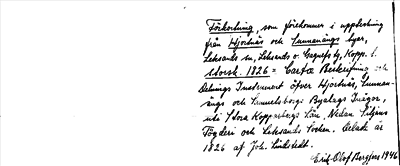 Förkortning, som förekommer i uppteckning
från Hjortnäs och Sunnanängs byar,
Leksands sn, Leksands o. Gagnefs tg, Kopp. l.
Storsk. 1826 = Carta Beskrifning och
delnings Instrument öfver Hjortnäs, Sunnan-
ängs och Sammelsborgs Byalags Inägor,
uti Stora Kopparbergs Län, Nedan Siljans
Fögderi och Leksands Socken. Delade år
1826 af Joh. Lindstedt.
Erik Olof Bergfors 1946